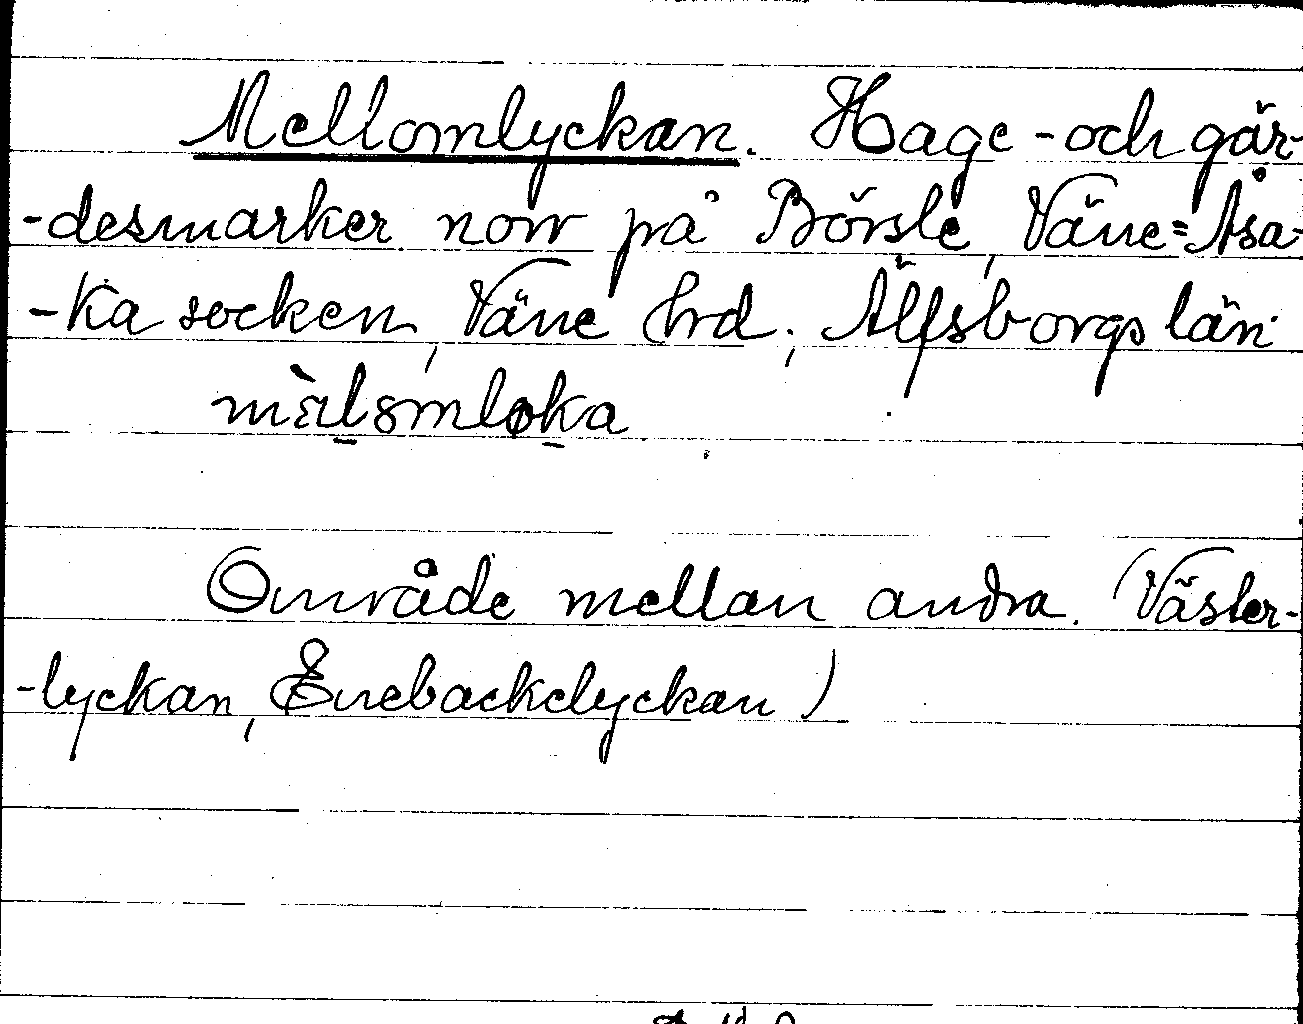 Mellomlyckan. Hage- och gär-
-desmarker norr på Börsle, Väne=Åsa-
-ka socken, Väne hrd, Älfsborgs län
Område mellan andra. (Väster-
-lyckan, Enebackelyckan)